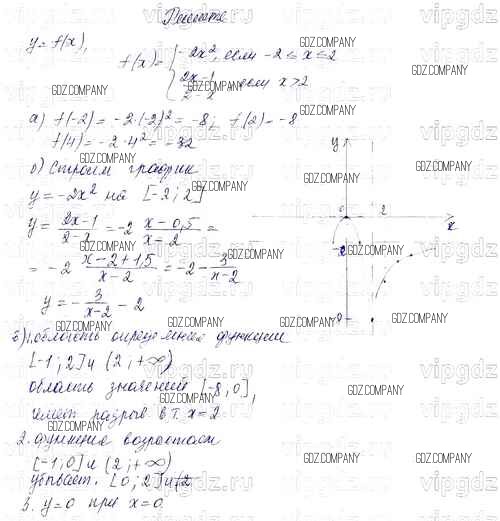 Решите
y = f(x),
f(x) = { -2x², если -2 ≤ x ≤ 2
2x-1 / 2-x если x > 2
а) f(-2) = -2·(-2)² = -8; f(2) = -8
f(4) = -2·4² = -32
Строим график
y = -2x² на [-2; 2]
y = 2x-1 / 2-x = -2 x-0,5 / x-2 =
= -2 x-2+1,5 / x-2 = -2 - 3 / x-2
y = - 3 / x-2 - 2
y
0
2
x
б) 1. область определения функции
[-1; 2] и (2; +∞)
область значений [-8, 0],
имеет разрыв в т. x = 2
2. функция возрастает
[-1; 0] и (2; +∞)
убывает. [0; 2]
3. y = 0 при x = 0
GDZ.COMPANY
vipgdz.ru